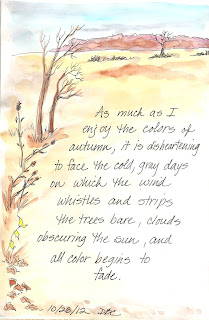 As much as I
enjoy the colors of
autumn, it is disheartening
to face the cold, gray days
on which the wind
whistles and strips
the trees bare, clouds
obscuring the sun, and
all color begins to
fade.
10/28/12